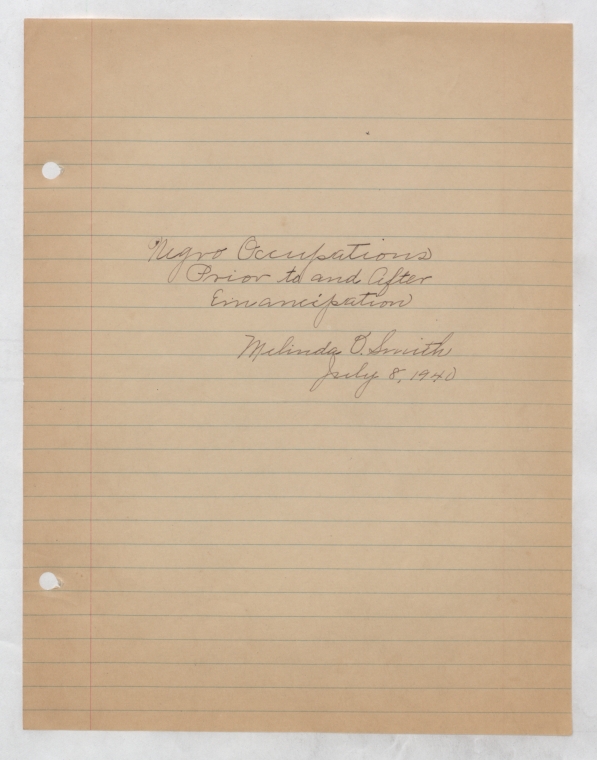 Negro Occupations
Prior to and After
Emancipation
Melinda B. Smith
July 8, 1940